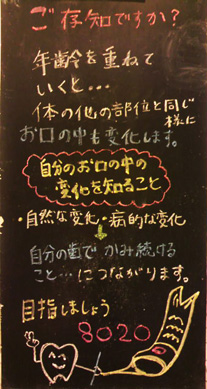 ご存知ですか？
年齢を重ねて
いくと…
体の他の部位と同じ
様に
お口の中も変化します。
自分のお口の中の
変化を知ること
・自然な変化・病的な変化
↓
自分の歯で かみ続ける
こと…につながります。
目指しましょう
80.20